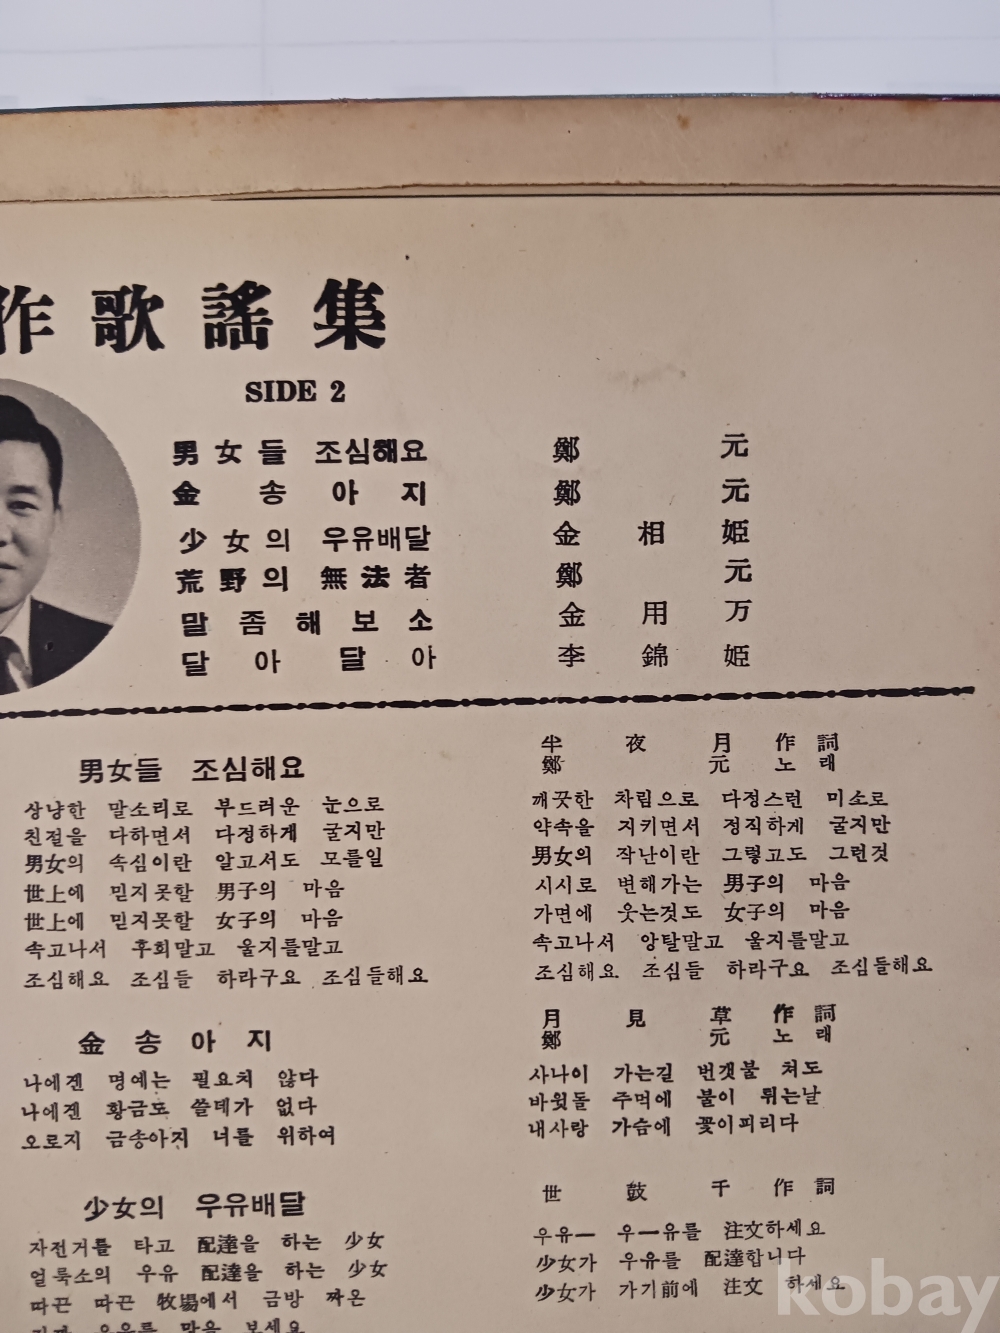 作歌謠集
SIDE 2
男女들 조심해요 鄭元
金송아지 鄭元
少女의 우유배달 金相姬
荒野의 無法者 鄭元
말좀해보소 金用万
달아달아 李錦姬
男女들 조심해요
半夜月 作詞
鄭元 노래
상냥한 말소리로 부드러운 눈으로
친절을 다하면서 다정하게 굴지만
男女의 속심이란 알고서도 모를일
世上에 믿지못할 男子의 마음
世上에 믿지못할 女子의 마음
속고나서 후회말고 울지를말고
조심해요 조심들 하라구요 조심들해요
깨끗한 차림으로 다정스런 미소로
약속을 지키면서 정직하게 굴지만
男女의 작난이란 그렇고도 그런것
시시로 변해가는 男子의 마음
가면에 웃는것도 女子의 마음
속고나서 앙탈말고 울지를말고
조심해요 조심들 하라구요 조심들해요
金송아지
月見草 作詞
鄭元 노래
나에겐 명예는 필요치 않다
나에겐 황금도 쓸데가 없다
오로지 금송아지 너를 위하여
사나이 가는길 번갯불 쳐도
바윗돌 주먹에 불이 튀는날
내사랑 가슴에 꽃이피리다
少女의 우유배달
世鼓千 作詞
자전거를 타고 配達을 하는 少女
얼룩소의 우유 配達을 하는 少女
따끈 따끈 牧場에서 금방 짜온
우유를 맛을 보세요
우유一 우一유를 注文하세요
少女가 우유를 配達합니다
少女가 가기前에 注文 하세요
kobay